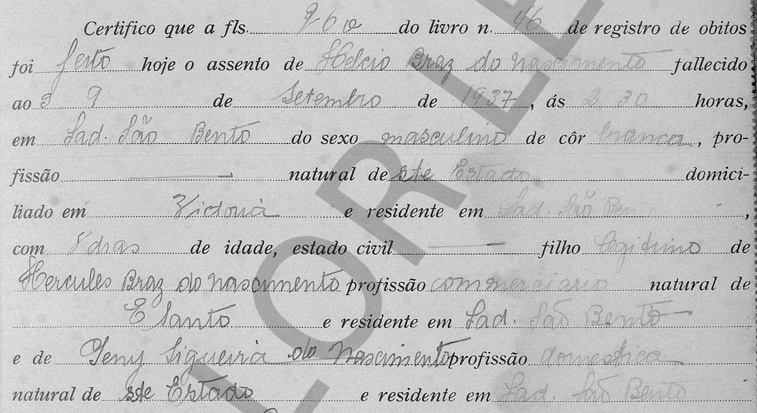 Certifico que a fls. 260 do livro n. 46 de registro de obitos
foi feito hoje o assento de Helcio Braz do nascimento fallecido
aos 9 de Setembro de 1937, ás 2 30 horas,
em Lad. São Bento do sexo masculino de côr branca, pro-
fissão — natural de ste Estado domici-
liado em Victoria e residente em Lad. São Ben ,
com 8 dias de idade, estado civil — filho legitimo de
Hercules Braz do nascimento profissão commerciario natural de
E Santo e residente em Lad. São Bento
e de Geny Siqueira do Nascimento profissão domestica
natural de ste Estado e residente em Lad. São Bento